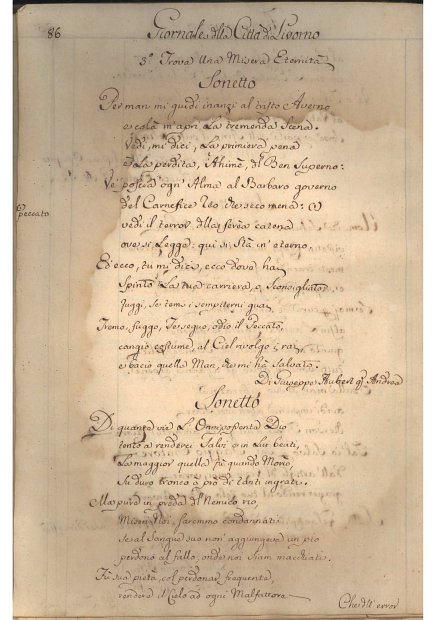 86
Giornale della Città di Livorno
3.° Trova Una Misera Eternità
Sonetto
Per man mi guidi inanzi al tristo Averno
e colà m'apri La tremenda Scena.
Vedi, mi dici, La primiera pena
è La perdita, Ahimè, del Ben Superno:
Ve poscia ogn' Alma al Barbaro governo
del Carnefice che seco mena:
peccato
vedi il terror della ferrea catena
ove si Legge: qui si Stà in eterno
Ed ecco, tu mi dici, ecco dove hai
Spinto La tua carriera o Sconsigliato
fuggi, se temi i sempiterni guai
Tremo, fuggo, Te seguo, odio il Peccato,
cangio costume, al Ciel rivolgo i rai
e bacio quella Man, che mi hà Salvato.
Di Giuseppe Aubert q. Andrea
Sonetto
Di quante vie L' Onnipossente Dio
tentò a renderci Salvi e in Lui beati,
La maggior quella fù quando Morio
Su duro tronco a prò di tanti ingrati.
Ma pure in preda del Nemico rio,
Miseri Noi, saremmo condannati
Se al Sangue suo non' aggiungeva un pio
perdono al fallo, onde noi Siam macchiati.
Fù sua pietà, col perdonar frequente,
rendere il Cielo ad ogni Malfattore
Che dell' error